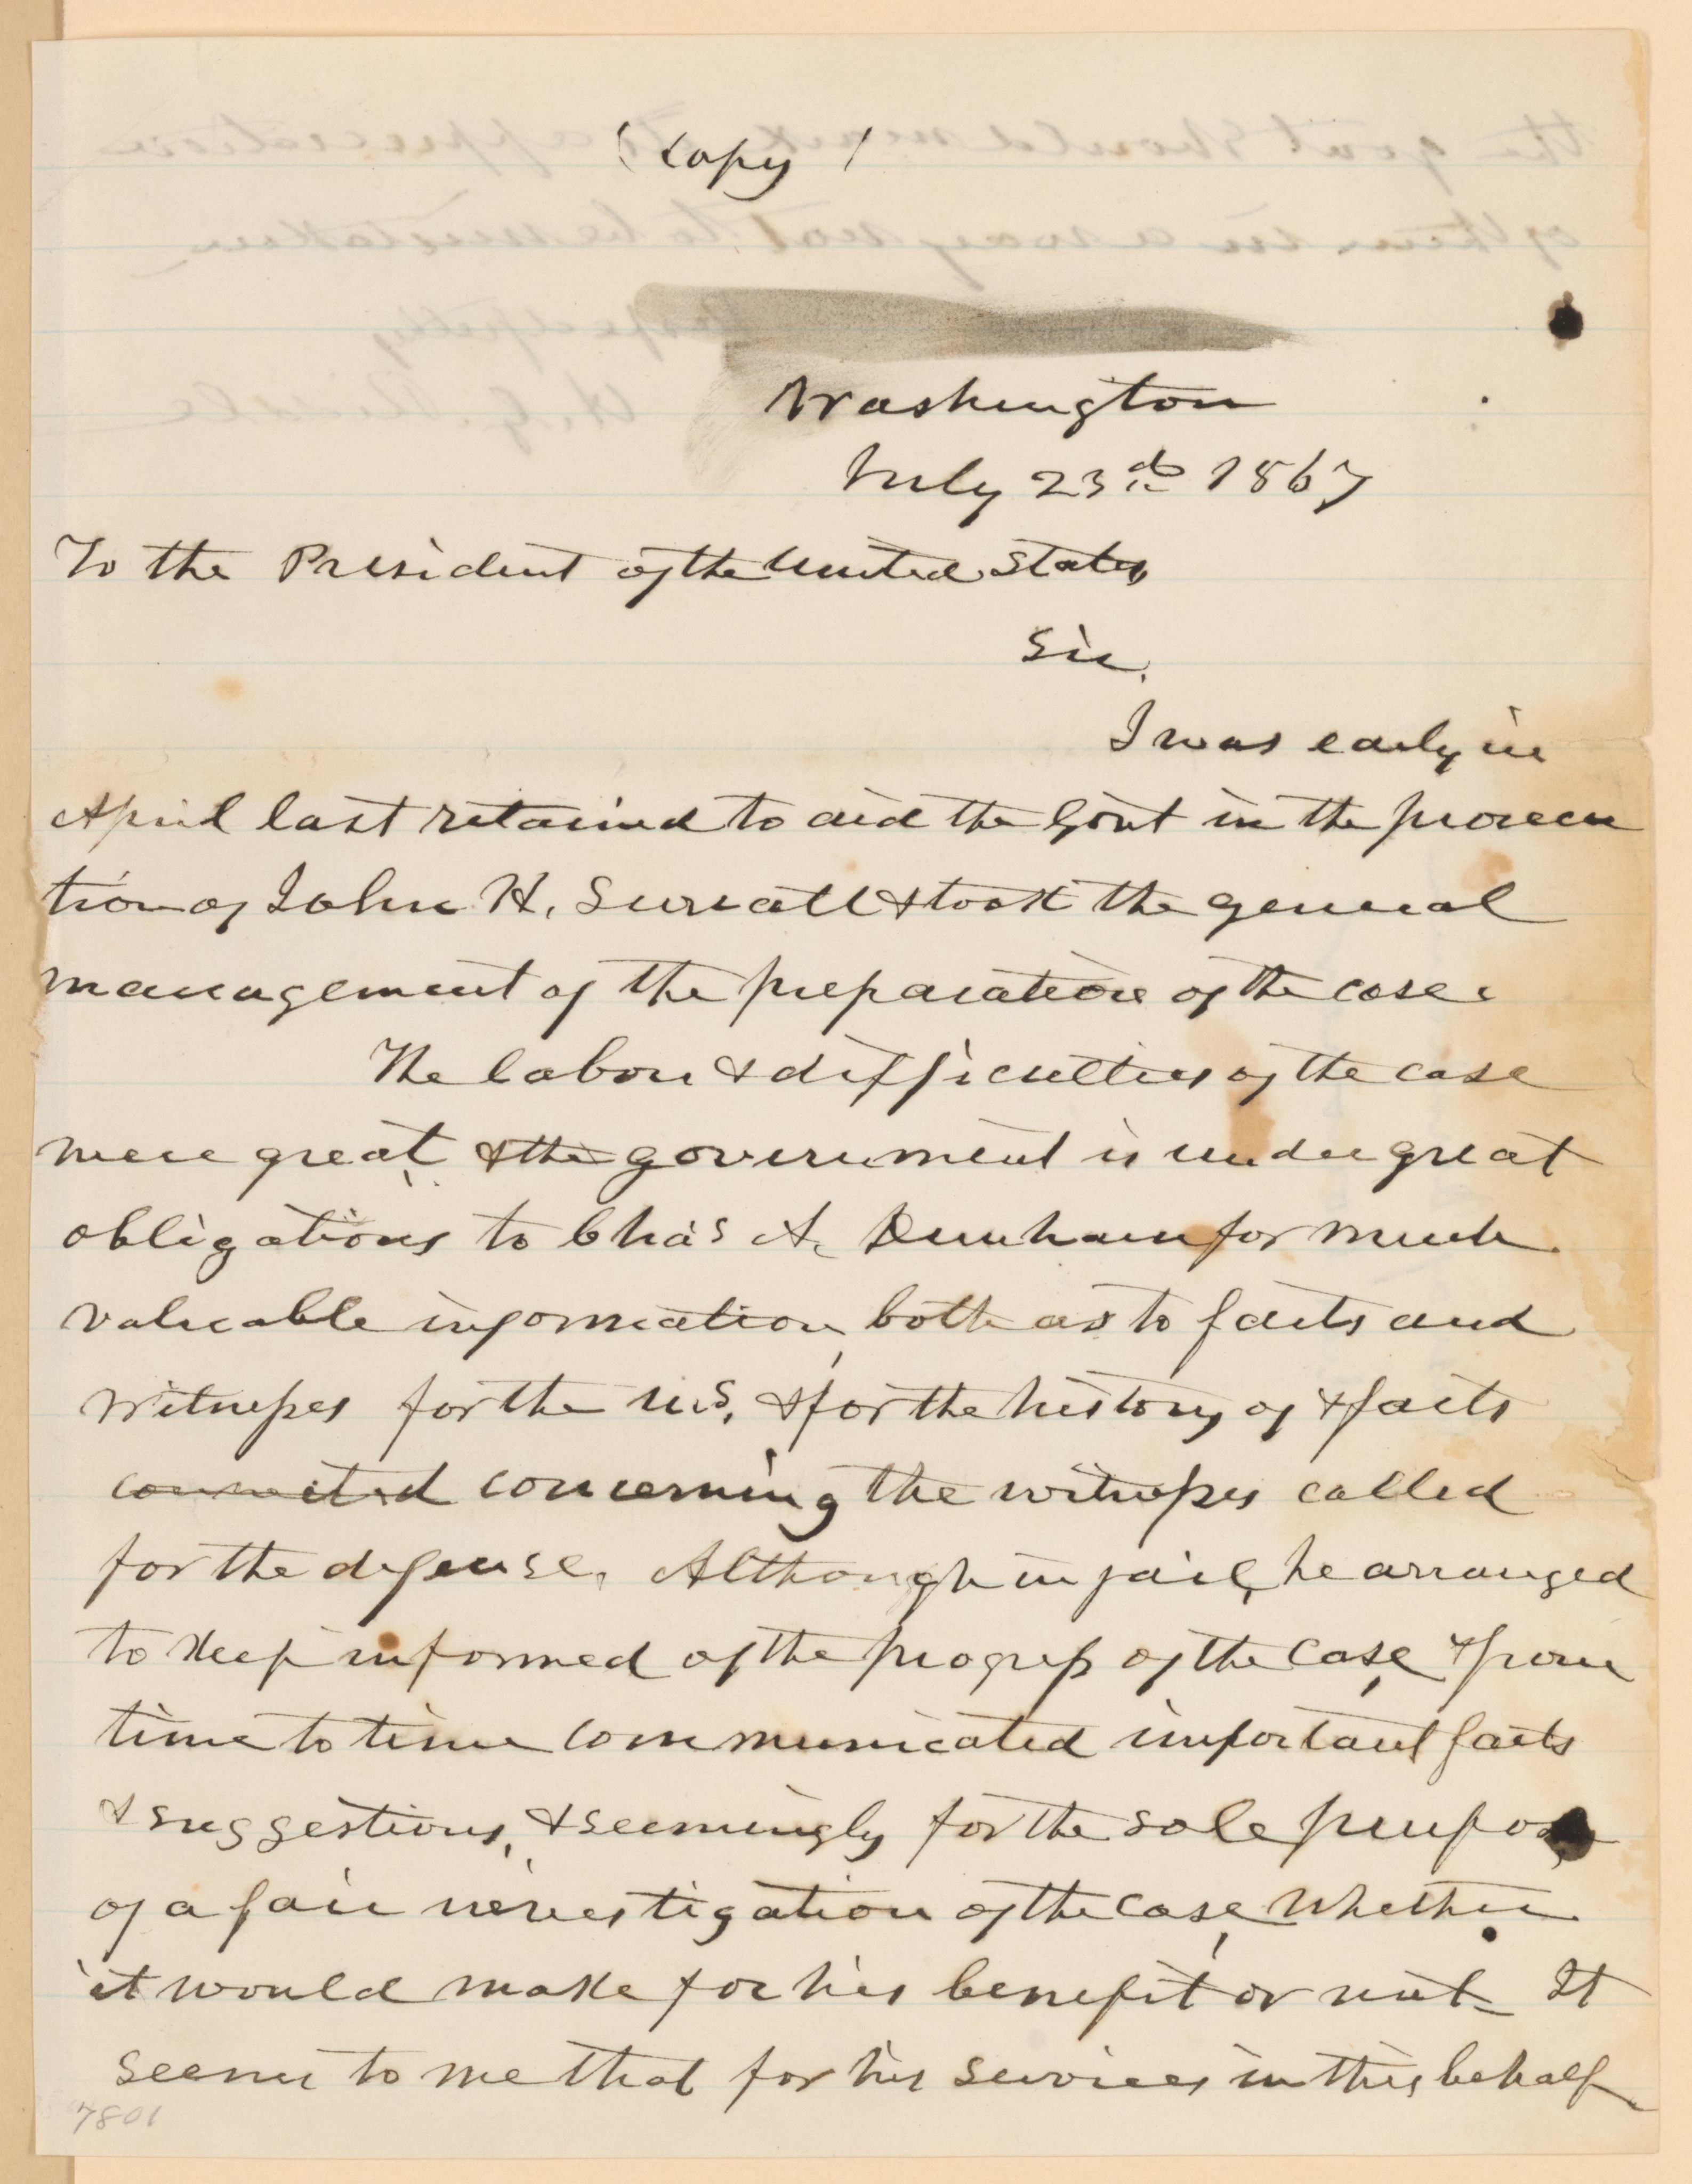 (Copy)
Washington
July 23d 1867
To the President of the United States
Sir,
I was early in
April last retained to aid the Govt in the prosecu
tion of John H. Surratt & took the general
management of the preparation of the case.
The labor & difficulties of the case
were great, & the government is under great
obligations to Chas A. Dunham for much
valuable information, both as to facts and
witnesses for the U.S. & for the history of & facts
connected concerning the witnesses called
for the defense. Although in jail, he arranged
to keep informed of the progress of the case, & from
time to time communicated important facts
& suggestions, & seemingly for the sole purpose
of a fair investigation of the case, whether
it would make for his benefit or not. It
seems to me that for his services in this behalf
7801